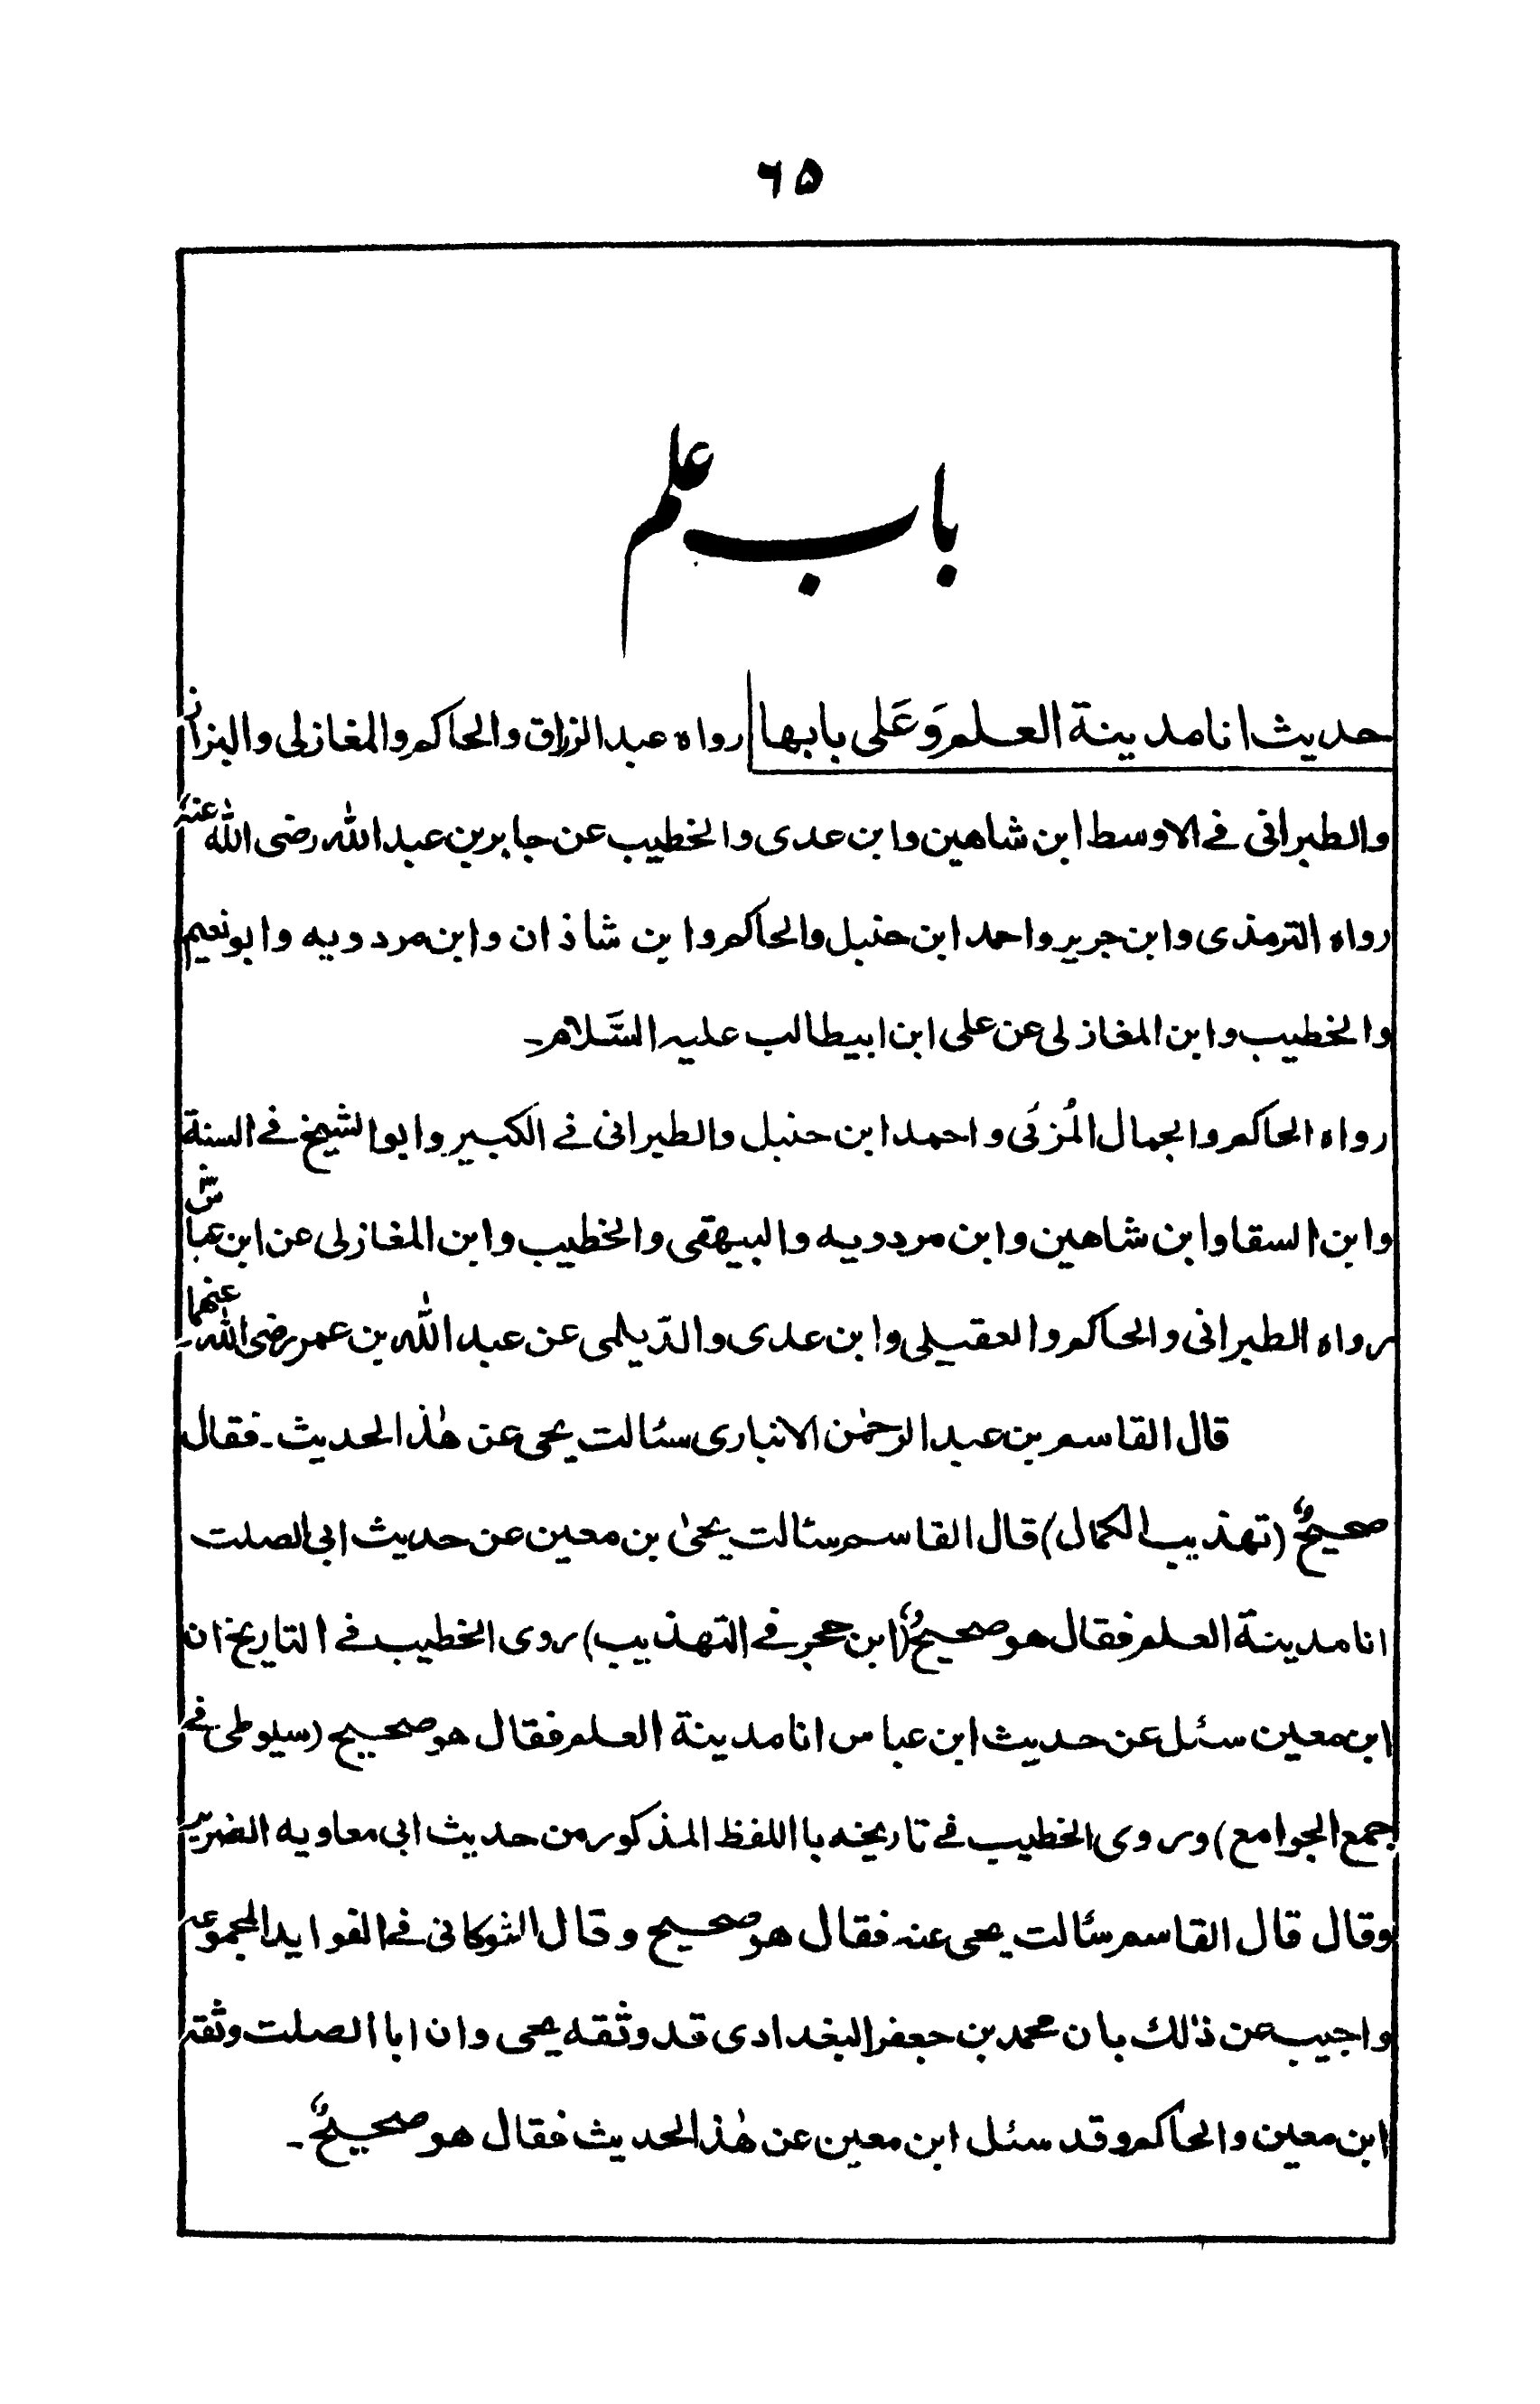 ٦۵
باب علم
حديث انا مدينة العلم وَعَلى بابها رواه عبد الرزاق والحاكم والمغازلى والبزار
والطبرانى فے الاوسط ابن شاهين وابن عدى والخطيب عن جابر بن عبد الله رضى الله عنہ
رواه الترمذى وابن جرير واحمد ابن حنبل والحاكم وابن شاذان وابن مردويه وابونعيم
والخطيب وابن المغازلى عن على ابن ابيطالب عليہ السَّلام۔
رواه الحاكم والجمال المُزنَى واحمد ابن حنبل والطبرانى فے الكبير وابوالشيخ فے السنة
وابن السقا وابن شاهين وابن مردويه والبيهقى والخطيب وابن المغازلى عن ابن عباس
رواه الطبرانى والحاكم والعقيلى وابن عدى والدّيلمى عن عبد الله بن عمر رضى الله عنهما۔
قال القاسم بن عبد الرحمٰن الانبارى سئالت يحى عن هٰذا الحديث۔ فقال
صحيحٌ (تهذيب الكمال) قال القاسم سئالت يحىٰ بن معين عن حديث ابى الصلت
انا مدينة العلم فقال هو صحيحٌ (ابن حجر فے التهذيب) روى الخطيب فے التاريخ ان
ابن معين سئل عن حديث ابن عباس انا مدينة العلم فقال هو صحيح (سيوطى فے
جمع الجوامع) وروى الخطيب فے تاريخه با اللفظ المذكور من حديث ابى معاويه الضرير
وقال قال القاسم سئالت يحى عنہ فقال هو صحيح وقال الشوكانى فے الفوايد المجموعہ
واجيب عن ذٰلك بان محمد بن جعفر البغدادى قد وثقه يحى وان ابا الصلت وثقہ
ابن معين والحاكم وقد سئل ابن معين عن هٰذا الحديث فقال هو صحيحٌ۔